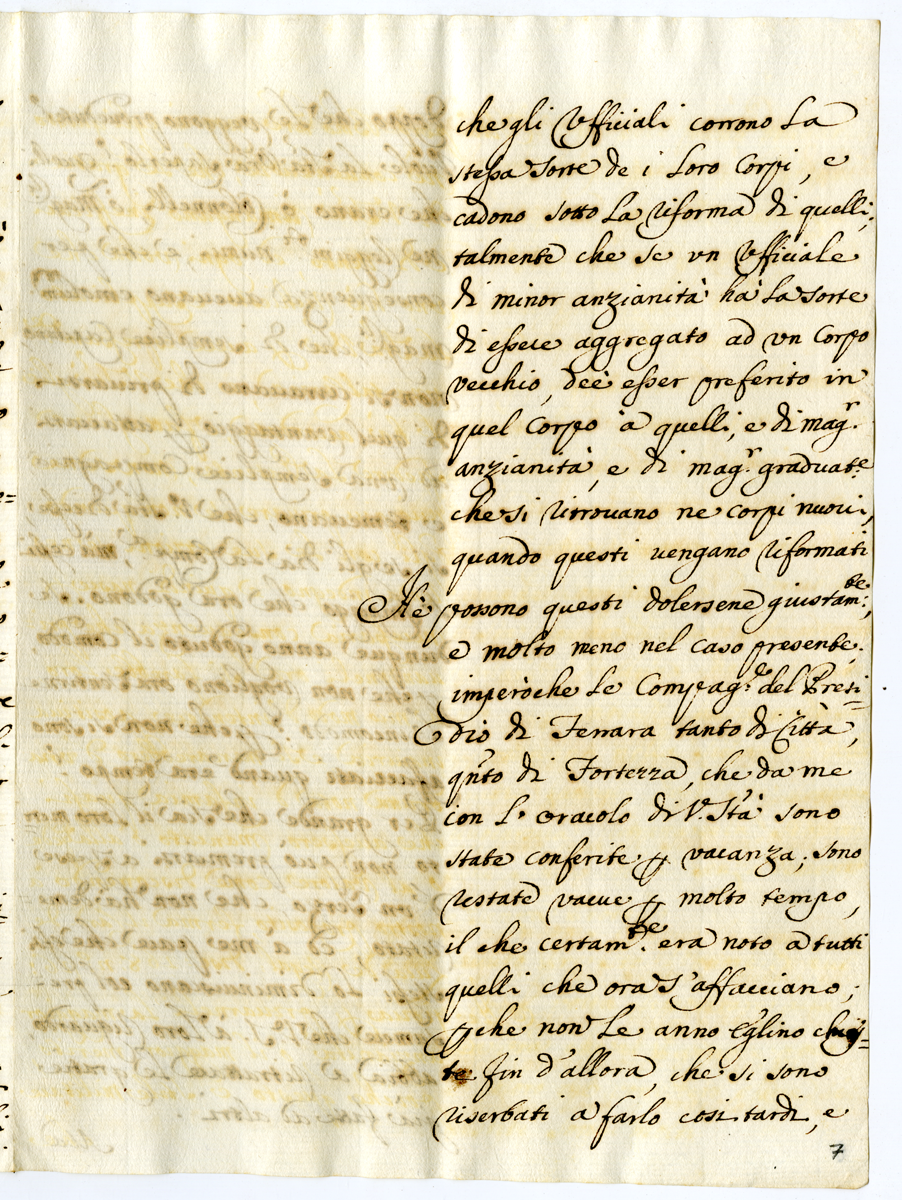 che gli Vfficiali corrono La
stessa sorte de i Loro Corpi, e
cadono sotto La riforma di quelli;
talmente che se vn Vfficiale
di minor anzianità hà La sorte
di essere aggregato ad vn Corpo
vecchio, deè esser preferito in
quel Corpo à quelli, e di magr.
anzianità, e di magr. graduate.
che si ritrouano ne corpi nuoui,
quando questi vengano riformati
Nè possono questi dolersene giustamte:,
e molto meno nel caso presente;
imperòche Le Compagde. del Presi=
dio di Ferrara tanto di Città,
qnto di Fortezza, che da me
con L' oracolo di V. Stà sono
state conferite p vacanza; sono
restate vacue p molto tempo,
il che certamte. era noto a tutti
quelli che ora s'affacciano;
pche non Le anno Eglino chies=
te fin d'allora, che si sono
riserbati a farlo cosi tardi, e
7